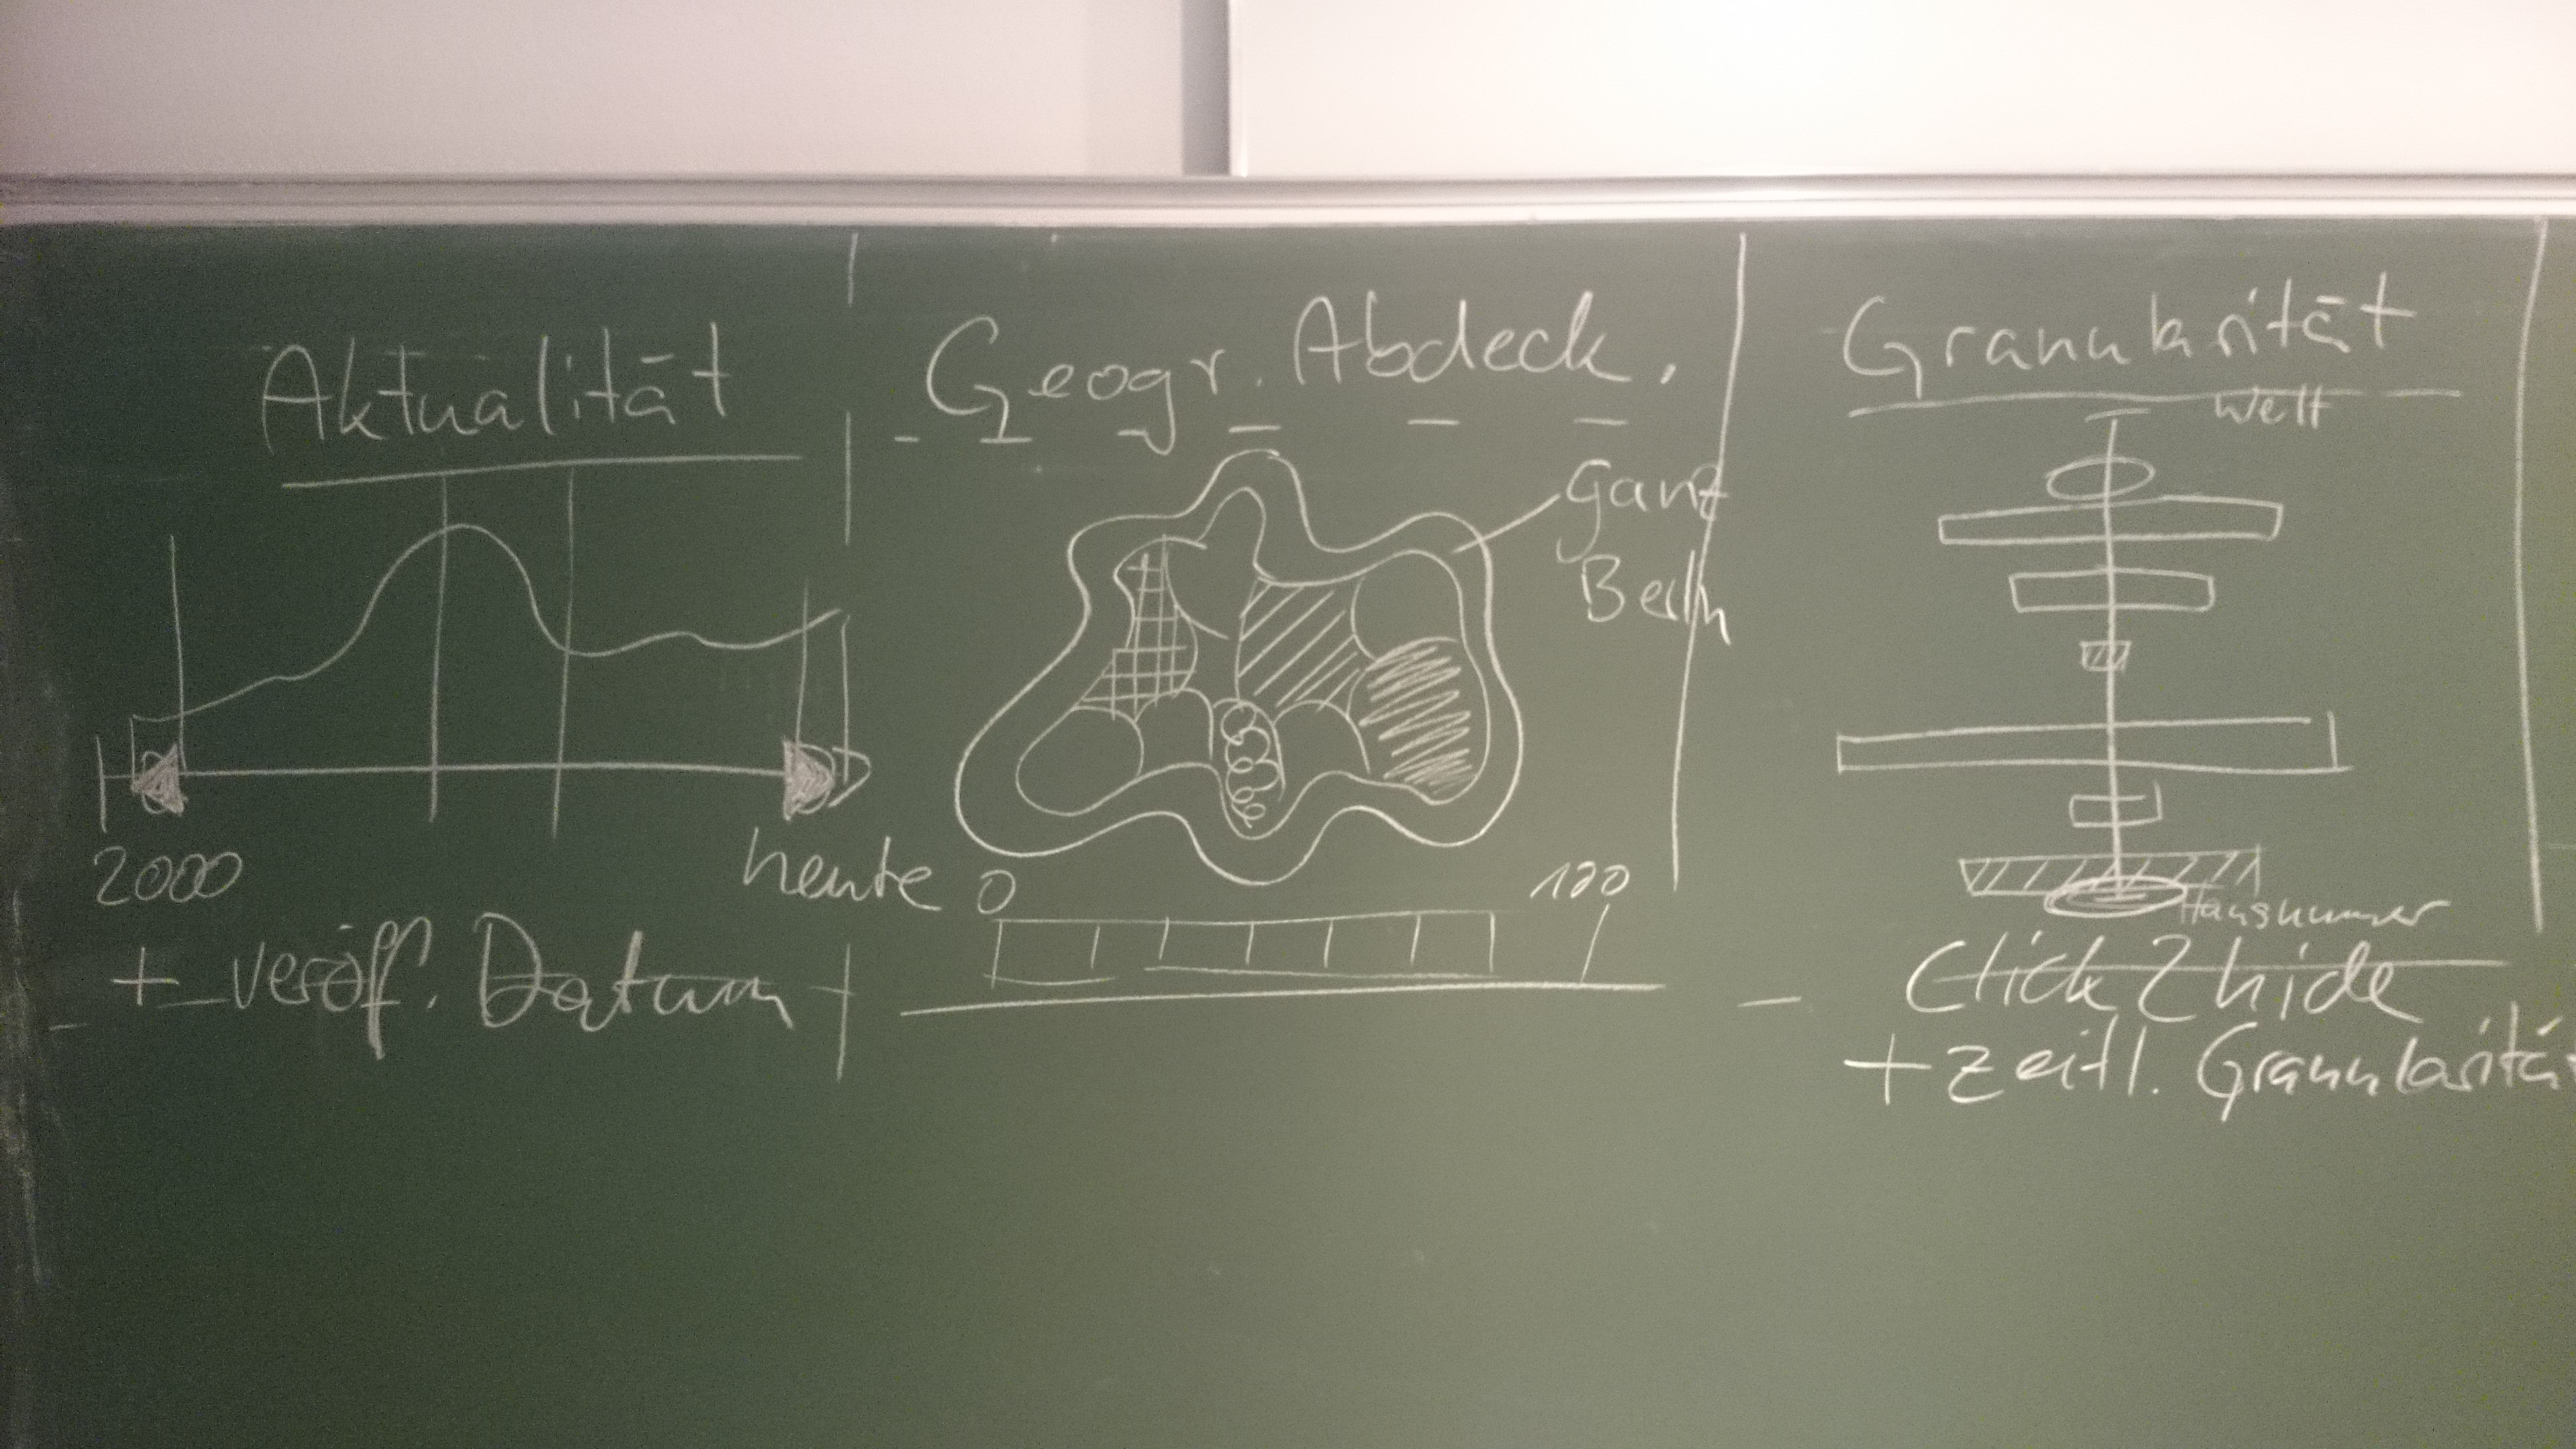 Aktualität
2000
heute
+ veröff. Datum
Geogr. Abdeck.
Ganz
Berlin
0
100
Granularität
Welt
Hausnummer
Click2hide
+ zeitl. Granularität